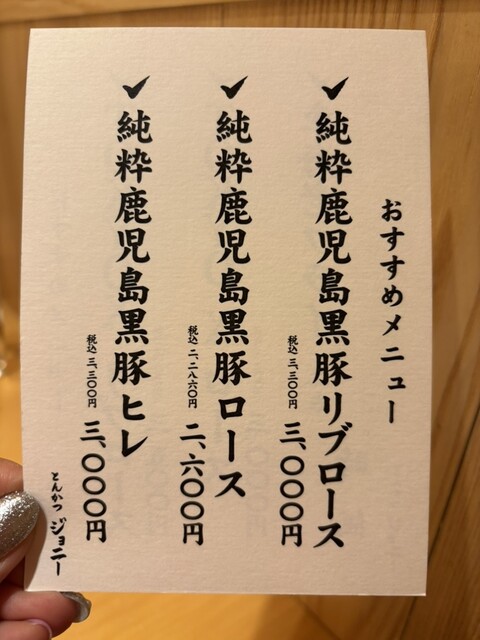 おすすめメニュー
✓純粋鹿児島黒豚リブロース
三、〇〇〇円
税込 三、三〇〇円
✓純粋鹿児島黒豚ロース
二、六〇〇円
税込 二、二八六〇円
✓純粋鹿児島黒豚ヒレ
三、〇〇〇円
税込 三、三〇〇円
とんかつ ジョニー